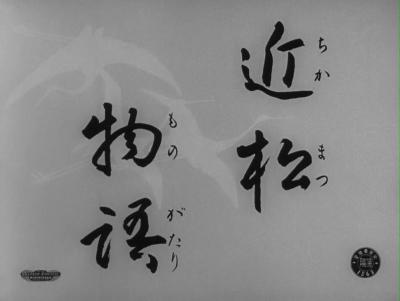 近松
ちかまつ
物語
ものがたり